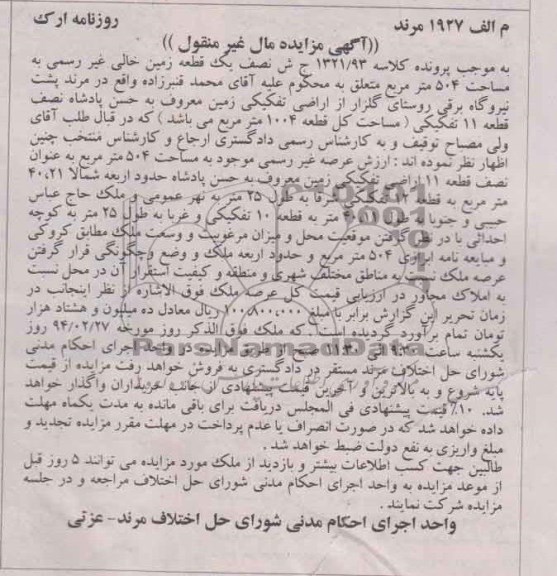 م الف ۱۹۲۷ مرند
روزنامه ارک
((آگهی مزایده مال غیر منقول))
به موجب پرونده کلاسه ۱۳۲۱/۹۳ ج ش نصف یک قطعه زمین خالی غیر رسمی به
مساحت ۵۰۴ متر مربع متعلق به محکوم علیه آقای محمد قنبرزاده واقع در مرند پشت
نیروگاه برقی روستای گلزار از اراضی تفکیکی زمین معروف به حسن پادشاه نصف
قطعه ۱۱ تفکیکی ( مساحت کل قطعه ۱۰۰۴ متر مربع می باشد ) که در قبال طلب آقای
ولی مصباح توقیف و به کارشناس رسمی دادگستری ارجاع و کارشناس منتخب چنین
اظهار نظر نموده اند : ارزش عرصه غیر رسمی موجود به مساحت ۵۰۴ متر مربع به عنوان
نصف قطعه ۱۱ اراضی تفکیکی زمین معروف به حسن پادشاه حدود اربعه شمالا ۴۰،۲۱
متر مربع به قطعه ۱۲ تفکیکی شرقا به طول ۲۵ متر به نهر عمومی و ملک حاج عباس
حبیبی و جنوبا به طول متر به قطعه ۱۰ تفکیکی و غربا به طول ۲۵ متر به کوچه
احداثی با در نظر گرفتن موقعیت محل و میزان مرغوبیت و وسعت ملک مطابق کروکی
و مبایعه نامه ابرازی ۵۰۴ متر مربع و حدود اربعه ملک و وضع وچگونگی قرار گرفتن
عرصه ملک نسبت به مناطق مختلف شهری و منطقه و کیفیت استقرار آن در محل نسبت
به املاک مجاور در ارزیابی قیمت کل عرصه ملک فوق الاشاره از نظر اینجانب در
زمان تحریر این گزارش برابر با مبلغ ۱۰۰،۸۰۰،۰۰۰ ریال معادل ده میلیون و هشتاد هزار
تومان تمام برآورد گردیده است. که ملک فوق الذکر روز مورخه ۹۴/۰۲/۲۷ روز
یکشنبه ساعت الی ۱۱:۳۰ صبح از طریق مزایده در واحد اجرای احکام مدنی
شورای حل اختلاف مرند مستقر در دادگستری به فروش خواهد رفت مزایده از قیمت
پایه شروع و به بالاترین و آخرین قیمت پیشنهادی از جانب خریداران واگذار خواهد
شد. ۱۰٪ قیمت پیشنهادی فی المجلس دریافت برای باقی مانده به مدت یکماه مهلت
داده خواهد شد که در صورت انصراف یا عدم پرداخت در مهلت مقرر مزایده تجدید و
مبلغ واریزی به نفع دولت ضبط خواهد شد .
طالبین جهت کسب اطلاعات بیشتر و بازدید از ملک مورد مزایده می توانند ۵ روز قبل
از موعد مزایده به واحد اجرای احکام مدنی شورای حل اختلاف مراجعه و در جلسه
مزایده شرکت نمایند .
واحد اجرای احکام مدنی شورای حل اختلاف مرند- عزتی
ParsNamadData